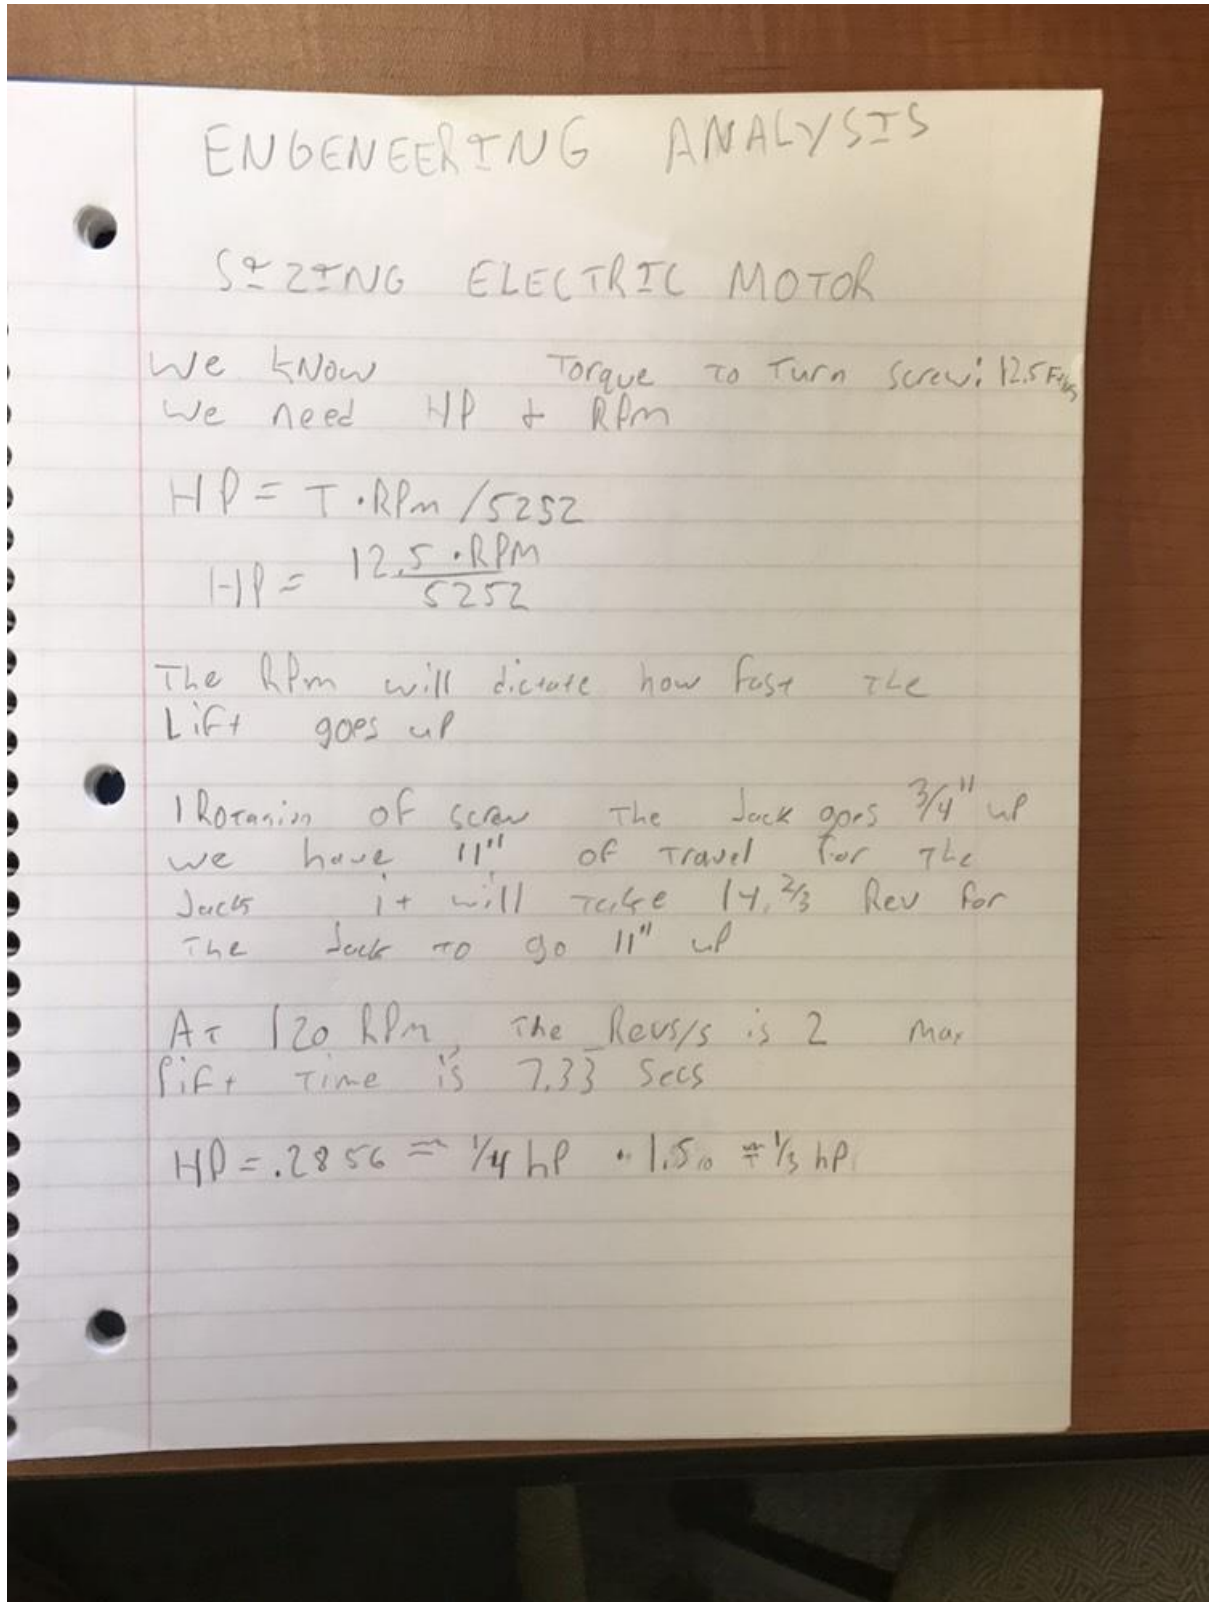 ENGENEERING ANALYSIS
SIZING ELECTRIC MOTOR
We kNow Torque to Turn Screw: 12.5 Ft lbs
we need HP + RPm
HP = T · RPm / 5252
HP = 12.5 · RPM / 5252
The RPm will dictate how fast the
Lift goes up
1 Rotanion of screw The Jack goes 3/4" up
we have 11" of Travel for The
Jack it will take 14,2/3 Rev for
The Jack to go 11" up
At 120 RPm, The Revs/s is 2 max
lift Time is 7.33 Secs
HP = .2856 = 1/4 hP · 1.5 = 1/3 hP